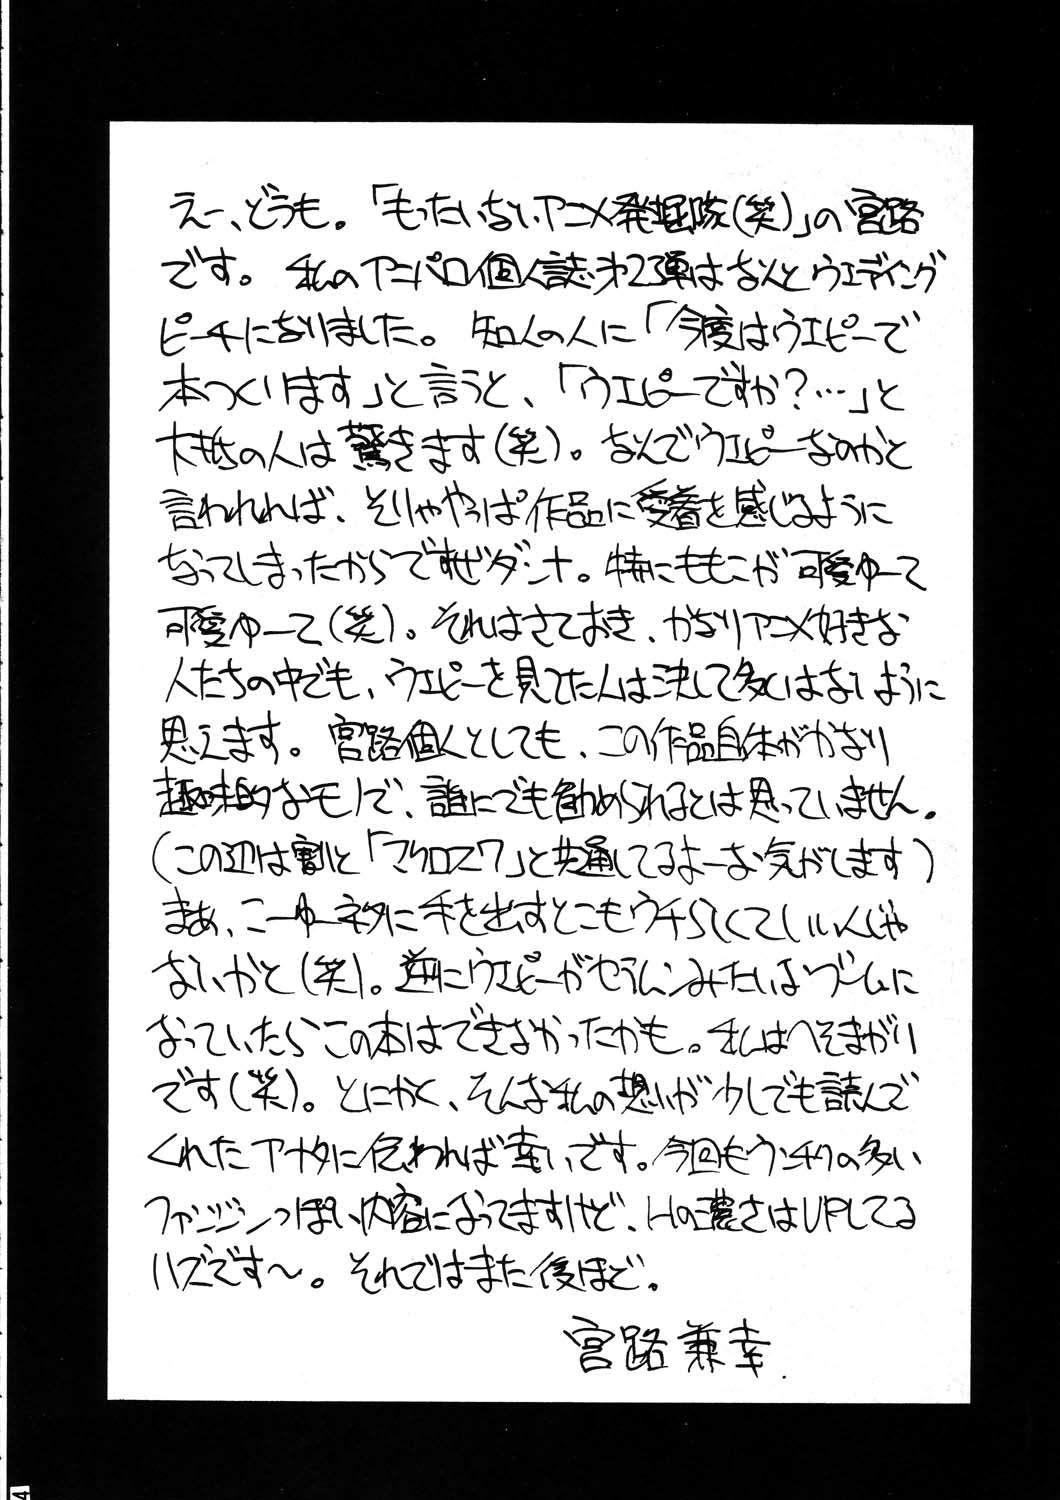 えー、どうも。「もったいないアニメ発掘隊(笑)」の宮路
です。私のアニパロ個人誌第2弾はなんとウエディング
ピーチになりました。知人の人に「今度はウエピーで
本つくります」と言うと、「ウエピーですか?…」と
大抵の人は驚きます(笑)。なんでウエピーなのかと
言われれば、そりゃやっぱ作品に愛着を感じるように
なってしまったからですぜダンナ。特にももこが可愛ゆーて
可愛ゆーて(笑)。それはさておき、かなりアニメ好きな
人たちの中でも、ウエピーを見てた人は決して多くはないように
思えます。宮路個人としても、この作品自体がかなり
趣味的なモノで、誰にでも勧められるとは思っていません。
(この辺は割と「マクロス7」と共通してるよーな気がします)
まあ、こーゆーネタに手を出すとこもウチらしくていいんじゃ
ないかと(笑)。逆にウエピーがセラムンみたいなブームに
なっていたらこの本はできなかったかも。私はへそまがり
です(笑)。とにかく、そんな私の想いが少しでも読んで
くれたアナタに伝われば幸いです。今回もウンチクの多い
ファンジンっぽい内容になってますけど、Hの濃さはUPしてる
ハズです〜。それではまた後ほど。
宮路兼幸
4